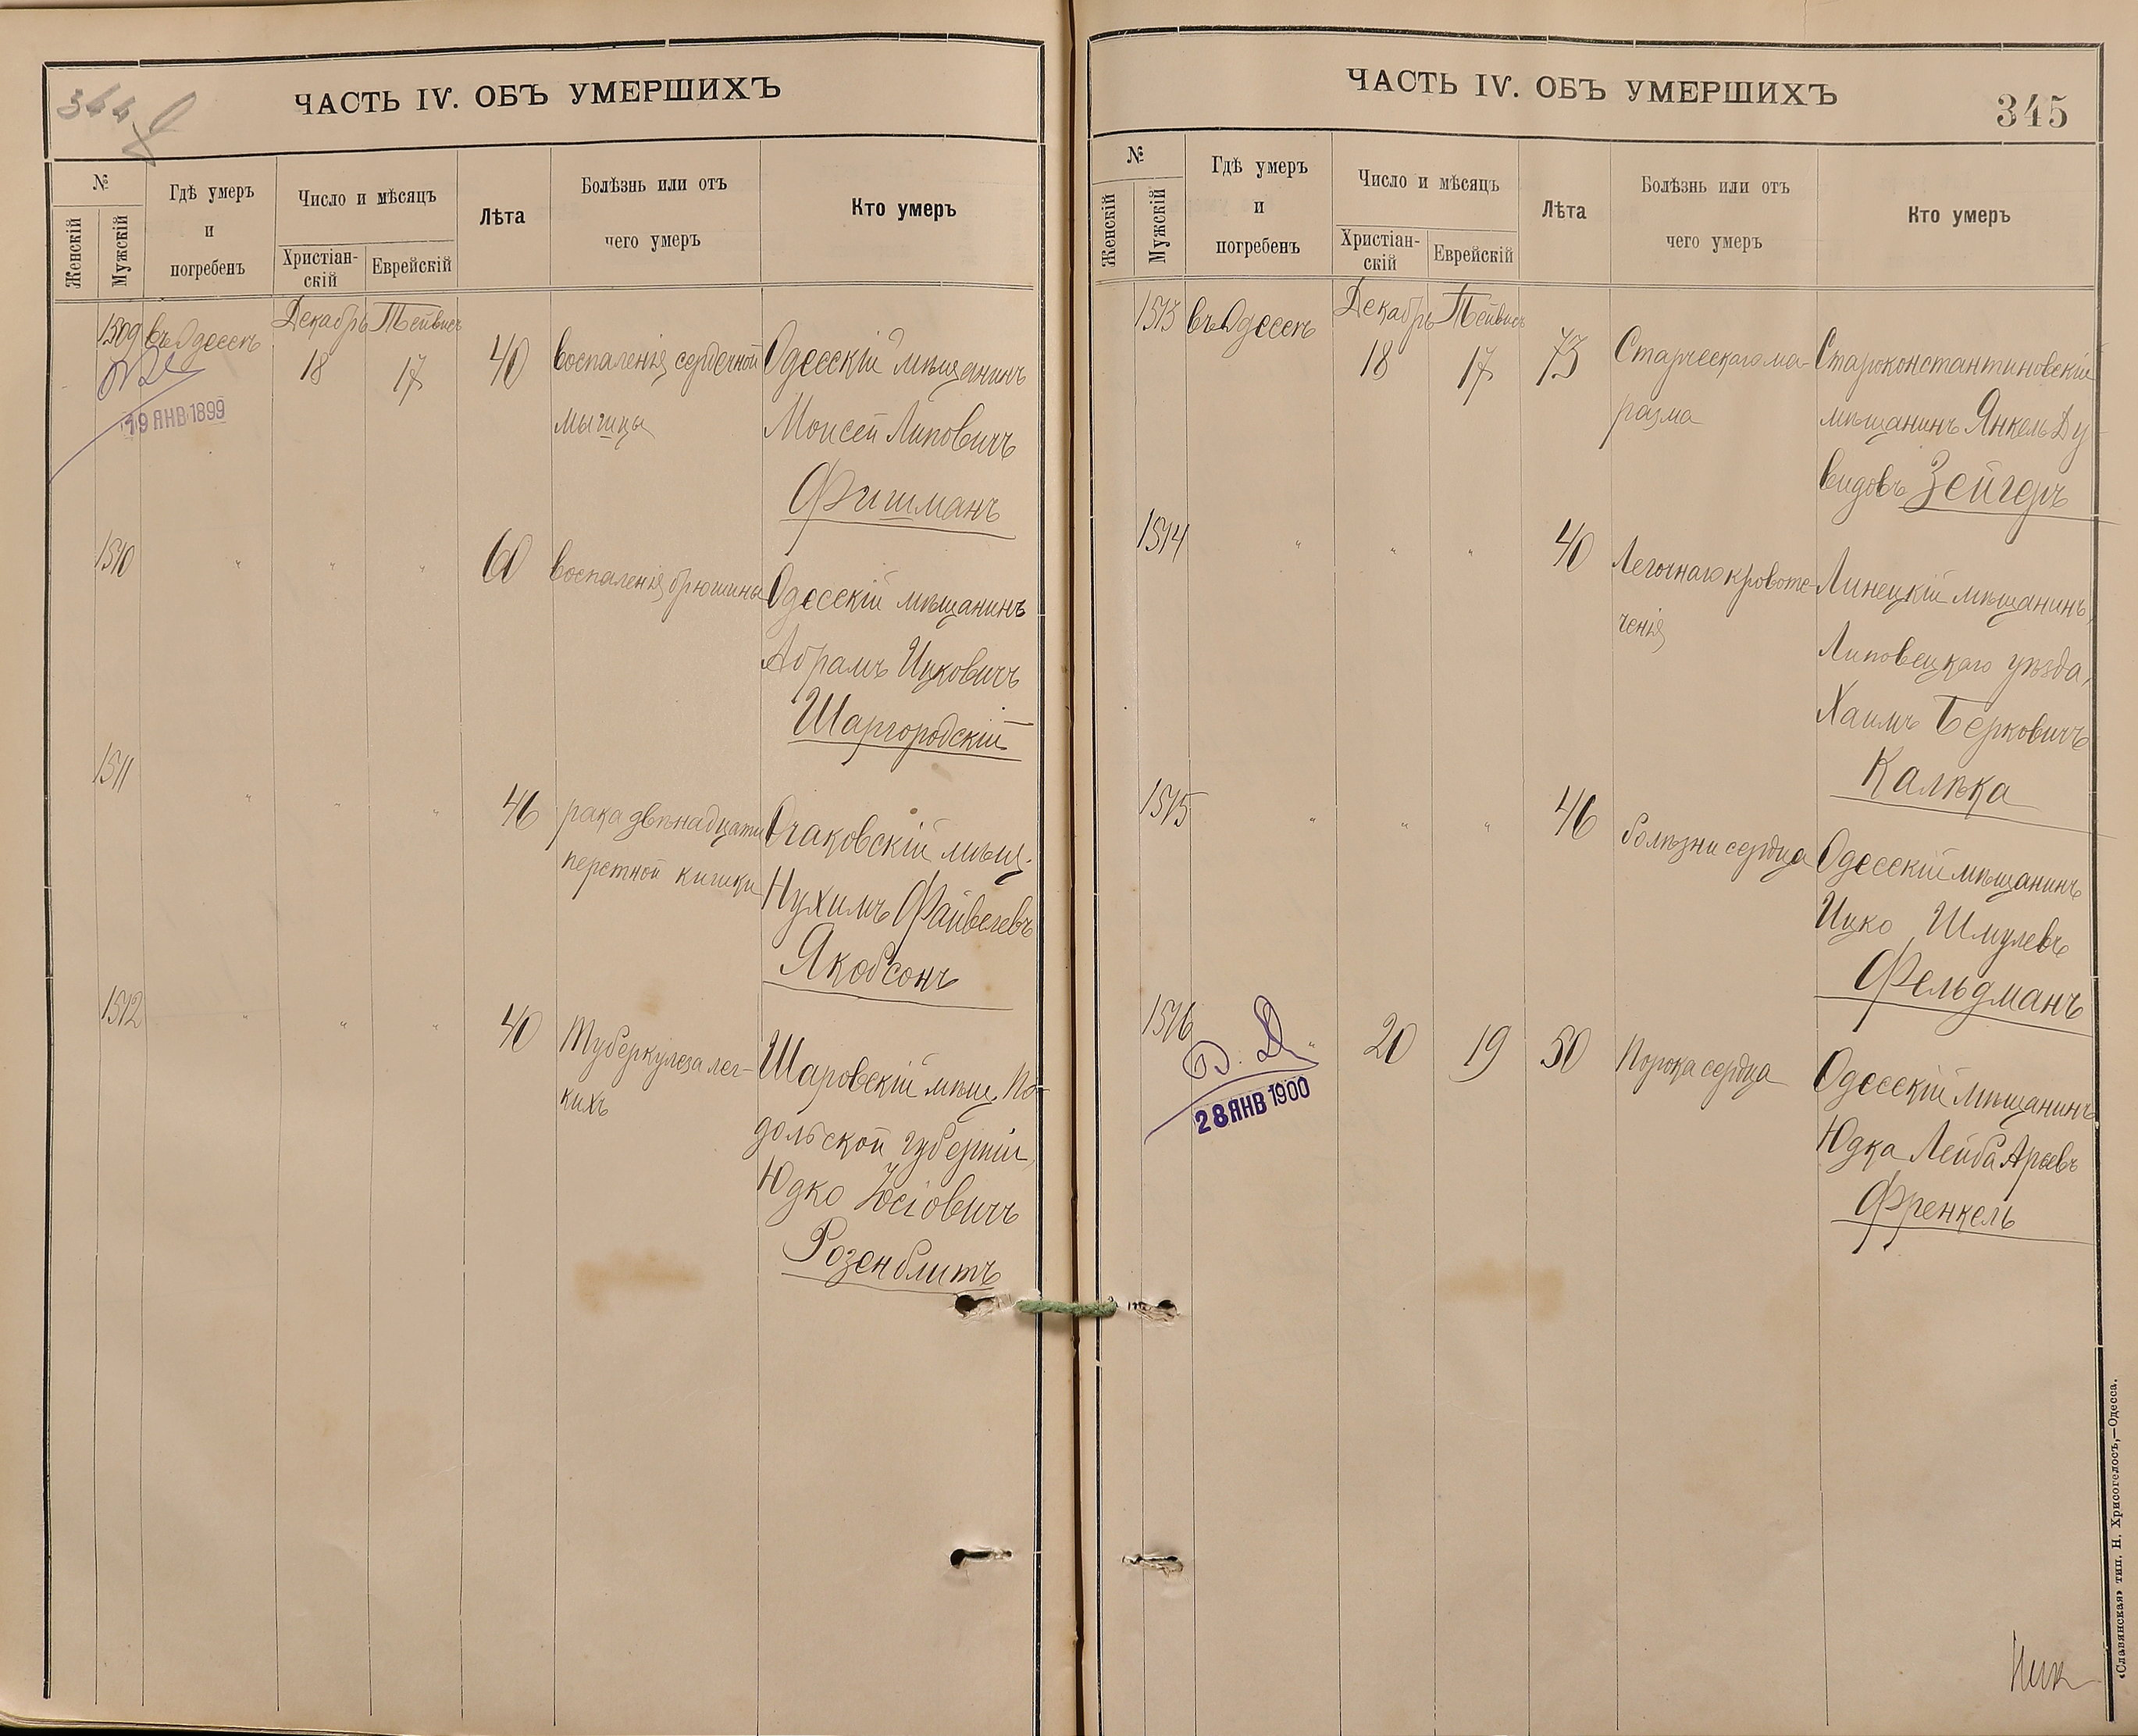 344
ЧАСТЬ IV. ОБЪ УМЕРШИХЪ
№
Женскій
Мужскій
Гдѣ умеръ
и
погребенъ
Число и мѣсяцъ
Христіан-
скій
Еврейскій
Лѣта
Болѣзнь или отъ
чего умеръ
Кто умеръ
1509 въ Одессѣ Декабрь Тейвисъ
18 17 40 воспаленія сердечной Одесскій мѣщанинъ
мышцы Моисей Липовичъ
19 ЯНВ 1899
Фишманъ
1510 " " " 60 воспаленія брюшины Одесскій мѣщанинъ
Абрамъ Ицковичъ
Шаргородскій
1511 " " " 46 рака двѣнадцати Очаковскій мѣщ.
перстной кишки Нухимъ Файвелевъ
Якобсонъ
1512 " " " 40 Туберкулеза лег- Шаровскій мѣщ. По-
кихъ дольской губерніи,
Юдко Іосіовичъ
Розенблитъ
ЧАСТЬ IV. ОБЪ УМЕРШИХЪ
345
№
Женскій
Мужскій
Гдѣ умеръ
и
погребенъ
Число и мѣсяцъ
Христіан-
скій
Еврейскій
Лѣта
Болѣзнь или отъ
чего умеръ
Кто умеръ
1513 въ Одессѣ Декабрь Тейвисъ
18 17 73 Старческаго ма- Староконстантиновскій
разма мѣщанинъ Янкель Ду
видовъ Зейгеръ
1514 " " " 40 Легочнаго кровоте- Линецкій мѣщанинъ,
ченія Липовецкаго уѣзда,
Хаимъ Берковичъ
Калѣка
1515 " " " 46 болѣзни сердца Одесскій мѣщанинъ
Ицко Шмулевъ
Фельдманъ
1516 " 20 19 50 Порока сердца Одесскій мѣщанинъ
28 ЯНВ 1900
Юдка Лейба Арьевъ
Френкель
«Славянская» тип. Н. Хрисогелосъ,—Одесса.